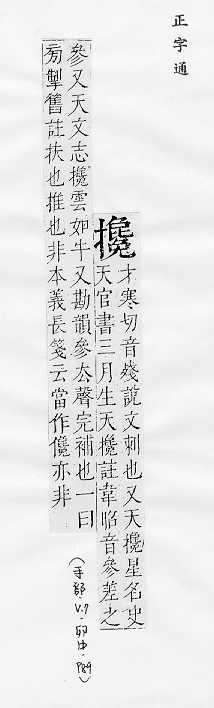 正字通
攙
才寒切音殘說文刺也又天攙星名史
天官書三月生天攙註韋昭音參差之
參又天文志攙雲如牛又勘韻參去聲完補也一曰
旁掣舊註扶也推也非本義長箋云當作儳亦非
(手部·V.7·卯中·P89)